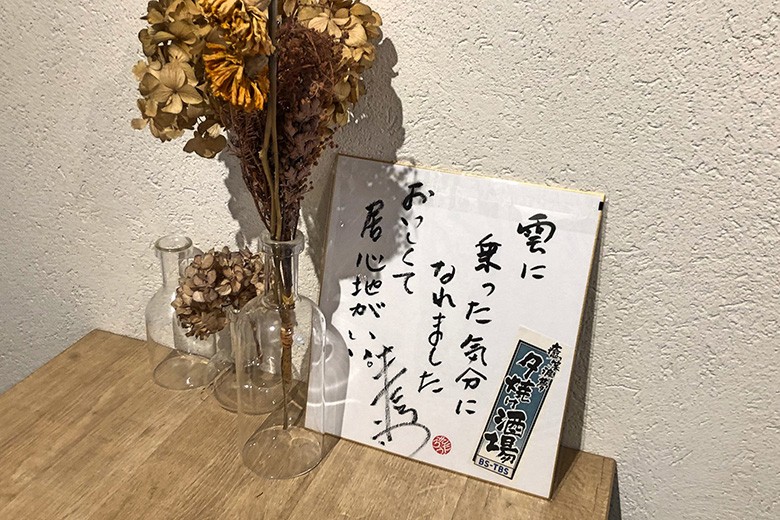 雲に
乗った気分に
なれました
おいしくて
居心地がいい。
夕焼け酒場
BS-TBS